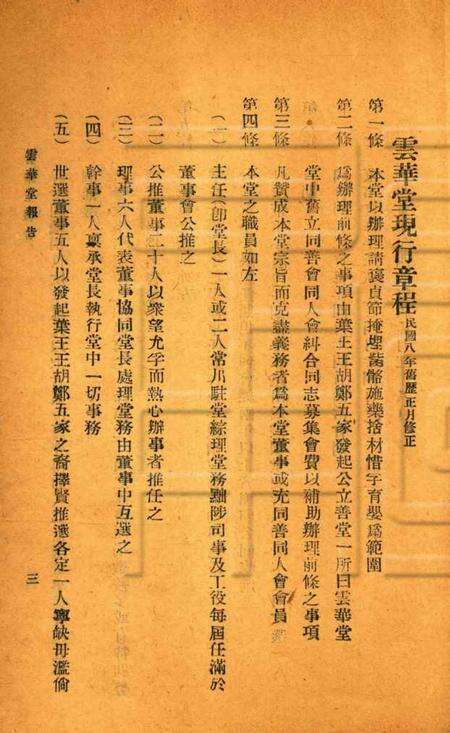 雲華堂現行章程 民國八年舊歷正月修正
第一條 本堂以辦理請襃貞節掩埋骼施藥捨材惜字育嬰爲範圍
第二條 爲辦理前條之事項由葉王王胡鄭五家發起公立善堂一所曰雲華堂
堂中舊立同善會同人會糾合同志募集會費以補助辦理前條之事項
第三條 凡贊成本堂宗旨而克盡義務者爲本堂董事或充同善同人會會員
第四條 本堂之職員如左
(一) 主任(卽堂長)一人或二人常川駐堂綜理堂務黜陟司事及工役每屆任滿於
董事會公推之
(二) 公推董事二十人以衆望允孚而熱心辦事者推任之
(三) 理事六人代表董事協同堂長處理堂務由董事中互選之
(四) 幹事一人稟承堂長執行堂中一切事務
(五) 世選董事五人以發起葉王王胡鄭五家之裔擇賢推選各定一人寗缺毋濫倘
雲華堂報告
三